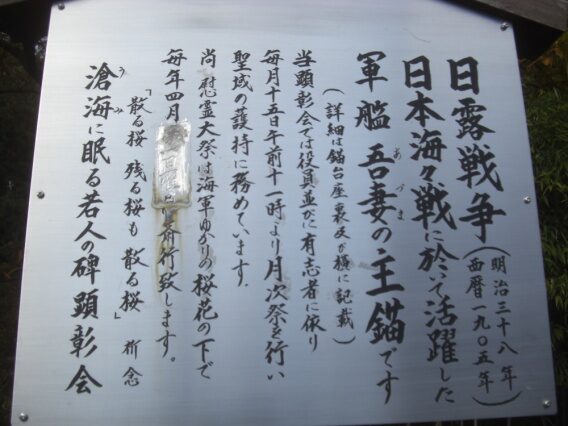 日露戦争(明治三十八年 西暦一九〇五年)
日本海々戦に於て活躍した
軍艦 吾妻の主錨です
あづま
(詳細は錨台座裏及び横に記載)
当頭彰会では役員並びに有志者に依り
毎月十五日午前十一時より月次祭を行い
聖域の護持に務めています.
尚 慰霊大祭は海軍ゆかりの桜花の下で
毎年四月 に斎行致します。
「散る桜 残る桜も 散る桜」 祈念
滄海に眠る若人の碑顕彰会
うみ